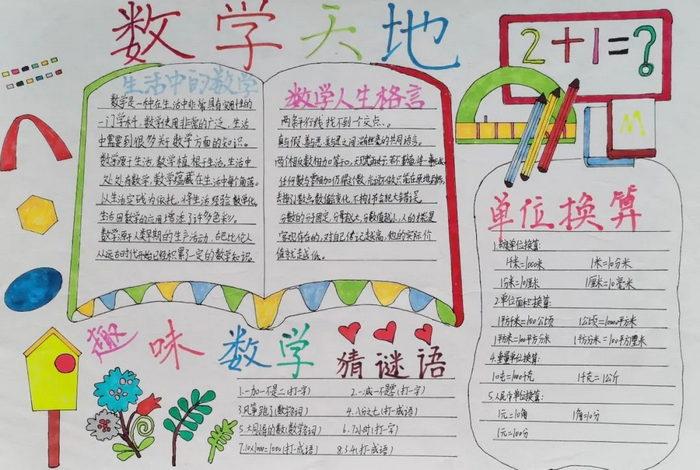 数学天地
2+1=?
M
生活中的数学
数学是一种在生活中非常具有实用性的
一门学科,数学使用非常的广泛,生活
中需要到很多关于数学方面的知识。
数学源于生活,数学植根于生活,生活中
处处有数学,数学蕴藏在生活中每个角落。
从生活实践为依托,将生活经验数学化。
生活因数学的应用增添了许多色彩。
数学源于人类早期的生产活动,
从远古时代开始已经积累了一定的数学知识
数学人生格言
两条平行线,找不到一个交点、。
真与假,善与恶,美与丑之间,
两个相反数相加等于0。
任何数与零相加仍原数,
分数的分
实现存在的,对自己估计越高,他的实际价
值就越低。
单位换算
1.长度单位换算
1千米=1000米 1米=10分米
1分米=10厘米 1厘米=10毫米
2.面积单位换算
1平方千米=100公顷 1公顷=10000平方米
1平方米=100平方分米 1平方分米=100平方厘米
4.重量单位换算:
1吨=1000千克 1千克=1公斤
5.人民币单位换算:
1元=10角 1角=10分
1元=100分
趣味数学
猜谜语
1.一加一不是二(打一字) 2.一减一不是零(打一字)
3.风筝跑了(数学名词) 4.八分之七(打一成语)
5.大同小异的数(数学名词) 6.72小时(打一字)
7.10x1000=10000(打一成语) 8.3.4(打一成语)